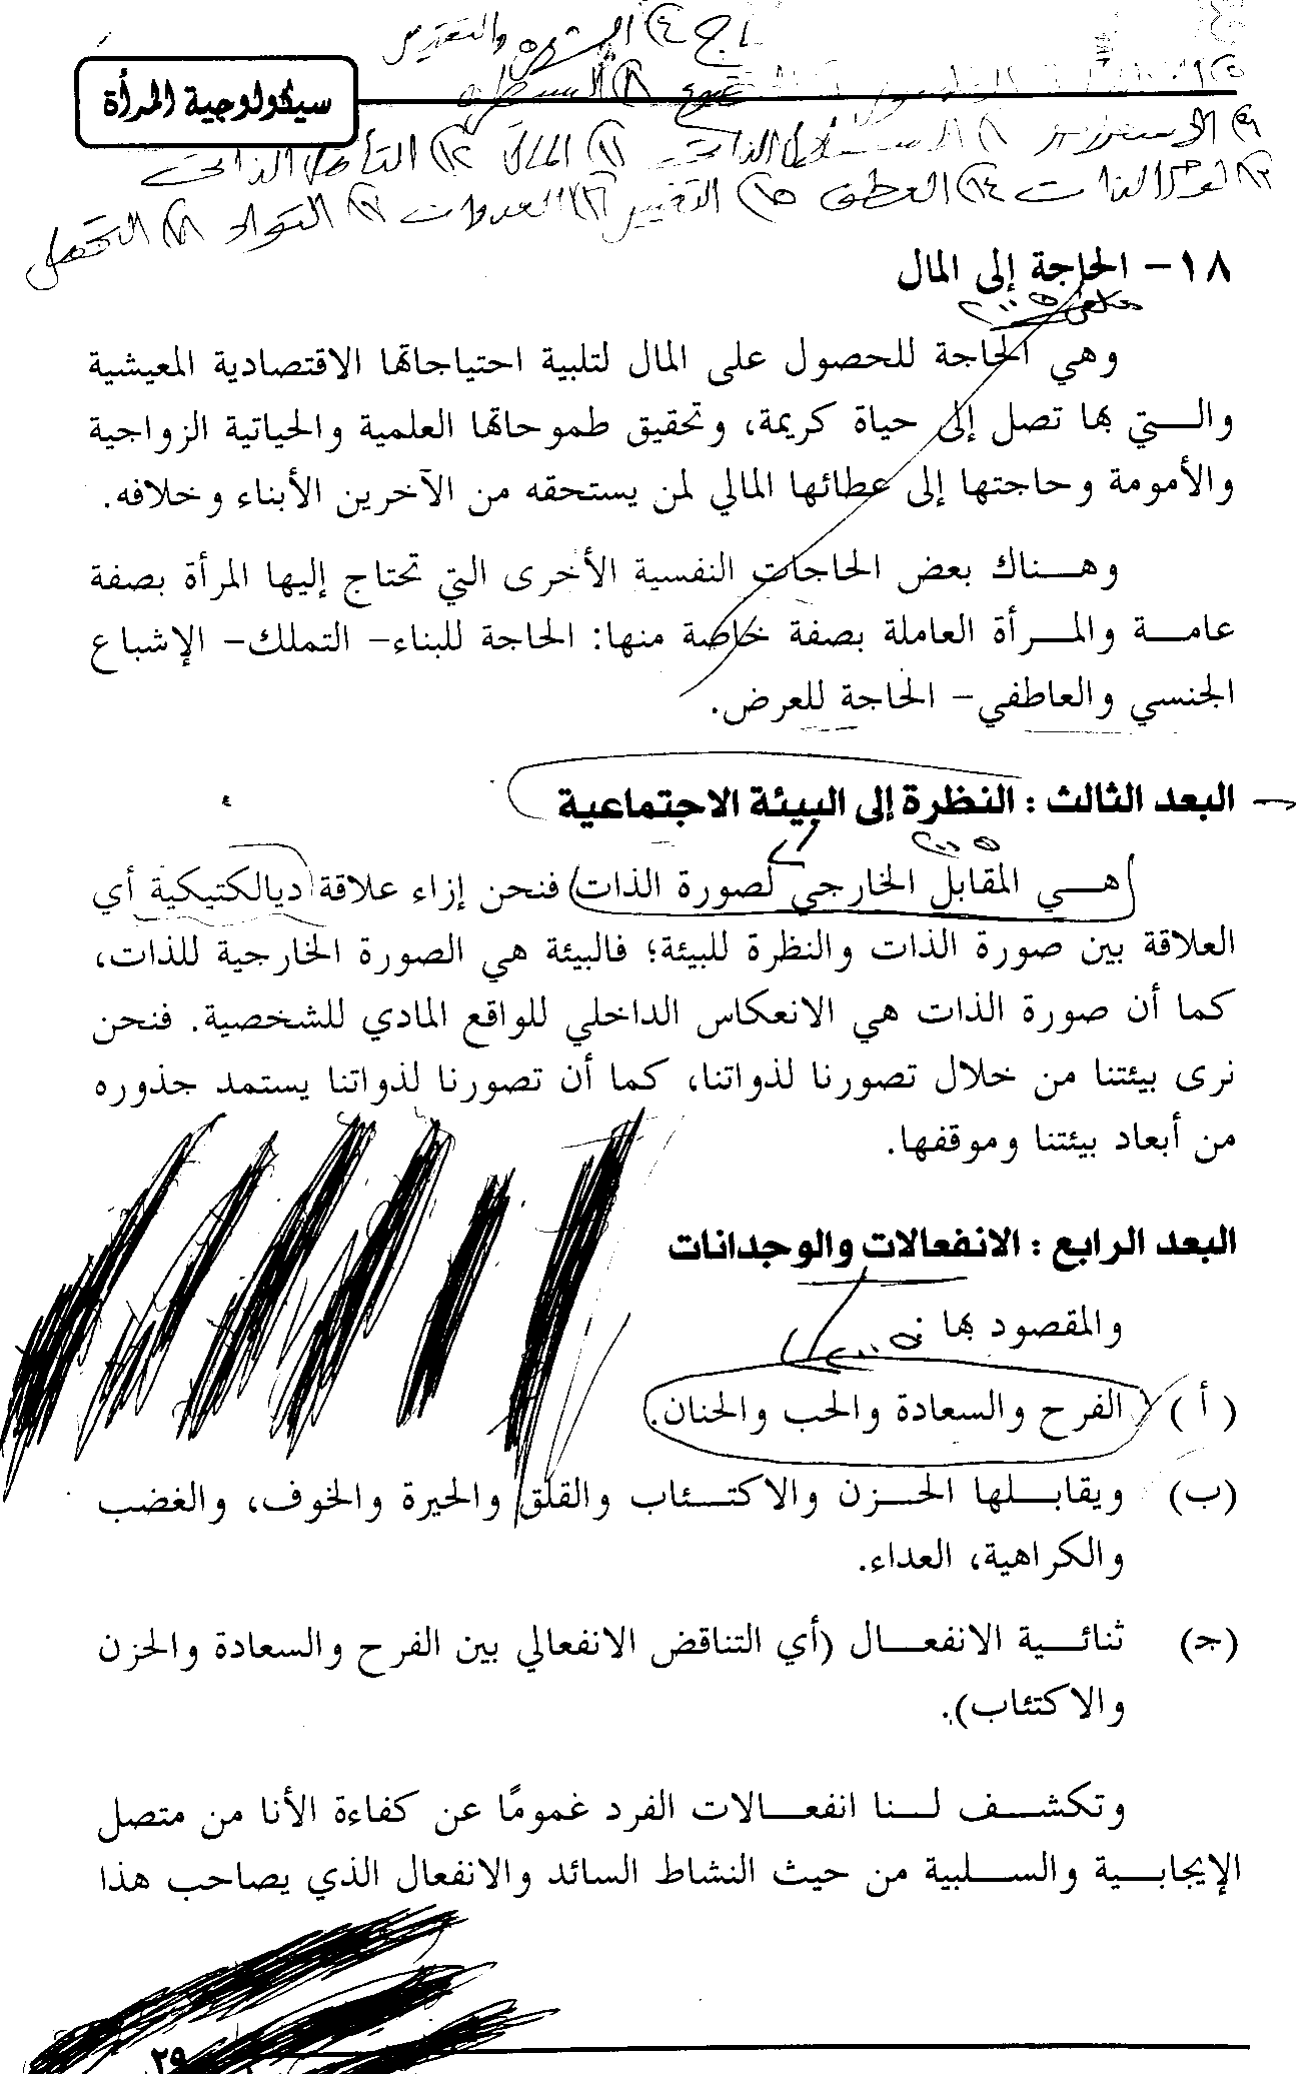 سيكولوجية المرأة
١٨- الحاجة إلى المال
وهي الحاجة للحصول على المال لتلبية احتياجاتها الاقتصادية المعيشية
والتي بها تصل إلى حياة كريمة، وتحقيق طموحاتها العلمية والحياتية الزواجية
والأمومة وحاجتها إلى عطائها المالي لمن يستحقه من الآخرين الأبناء وخلافه.
وهناك بعض الحاجات النفسية الأخرى التي تحتاج إليها المرأة بصفة
عامة والمرأة العاملة بصفة خاصة منها: الحاجة للبناء- التملك- الإشباع
الجنسي والعاطفي- الحاجة للعرض.
البعد الثالث : النظرة إلى البيئة الاجتماعية
هي المقابل الخارجي لصورة الذات فنحن إزاء علاقة ديالكتيكية أي
العلاقة بين صورة الذات والنظرة للبيئة؛ فالبيئة هي الصورة الخارجية للذات،
كما أن صورة الذات هي الانعكاس الداخلي للواقع المادي للشخصية. فنحن
نرى بيئتنا من خلال تصورنا لذواتنا، كما أن تصورنا لذواتنا يستمد جذوره
من أبعاد بيئتنا وموقفها.
البعد الرابع : الانفعالات والوجدانات
والمقصود بها
(أ) الفرح والسعادة والحب والحنان.
(ب) ويقابلها الحزن والاكتئاب والقلق والحيرة والخوف، والغضب
والكراهية، العداء.
(جـ) ثنائية الانفعال (أي التناقض الانفعالي بين الفرح والسعادة والحزن
والاكتئاب).
وتكشف لنا انفعالات الفرد عمومًا عن كفاءة الأنا من متصل
الإيجابية والسلبية من حيث النشاط السائد والانفعال الذي يصاحب هذا
٢٩